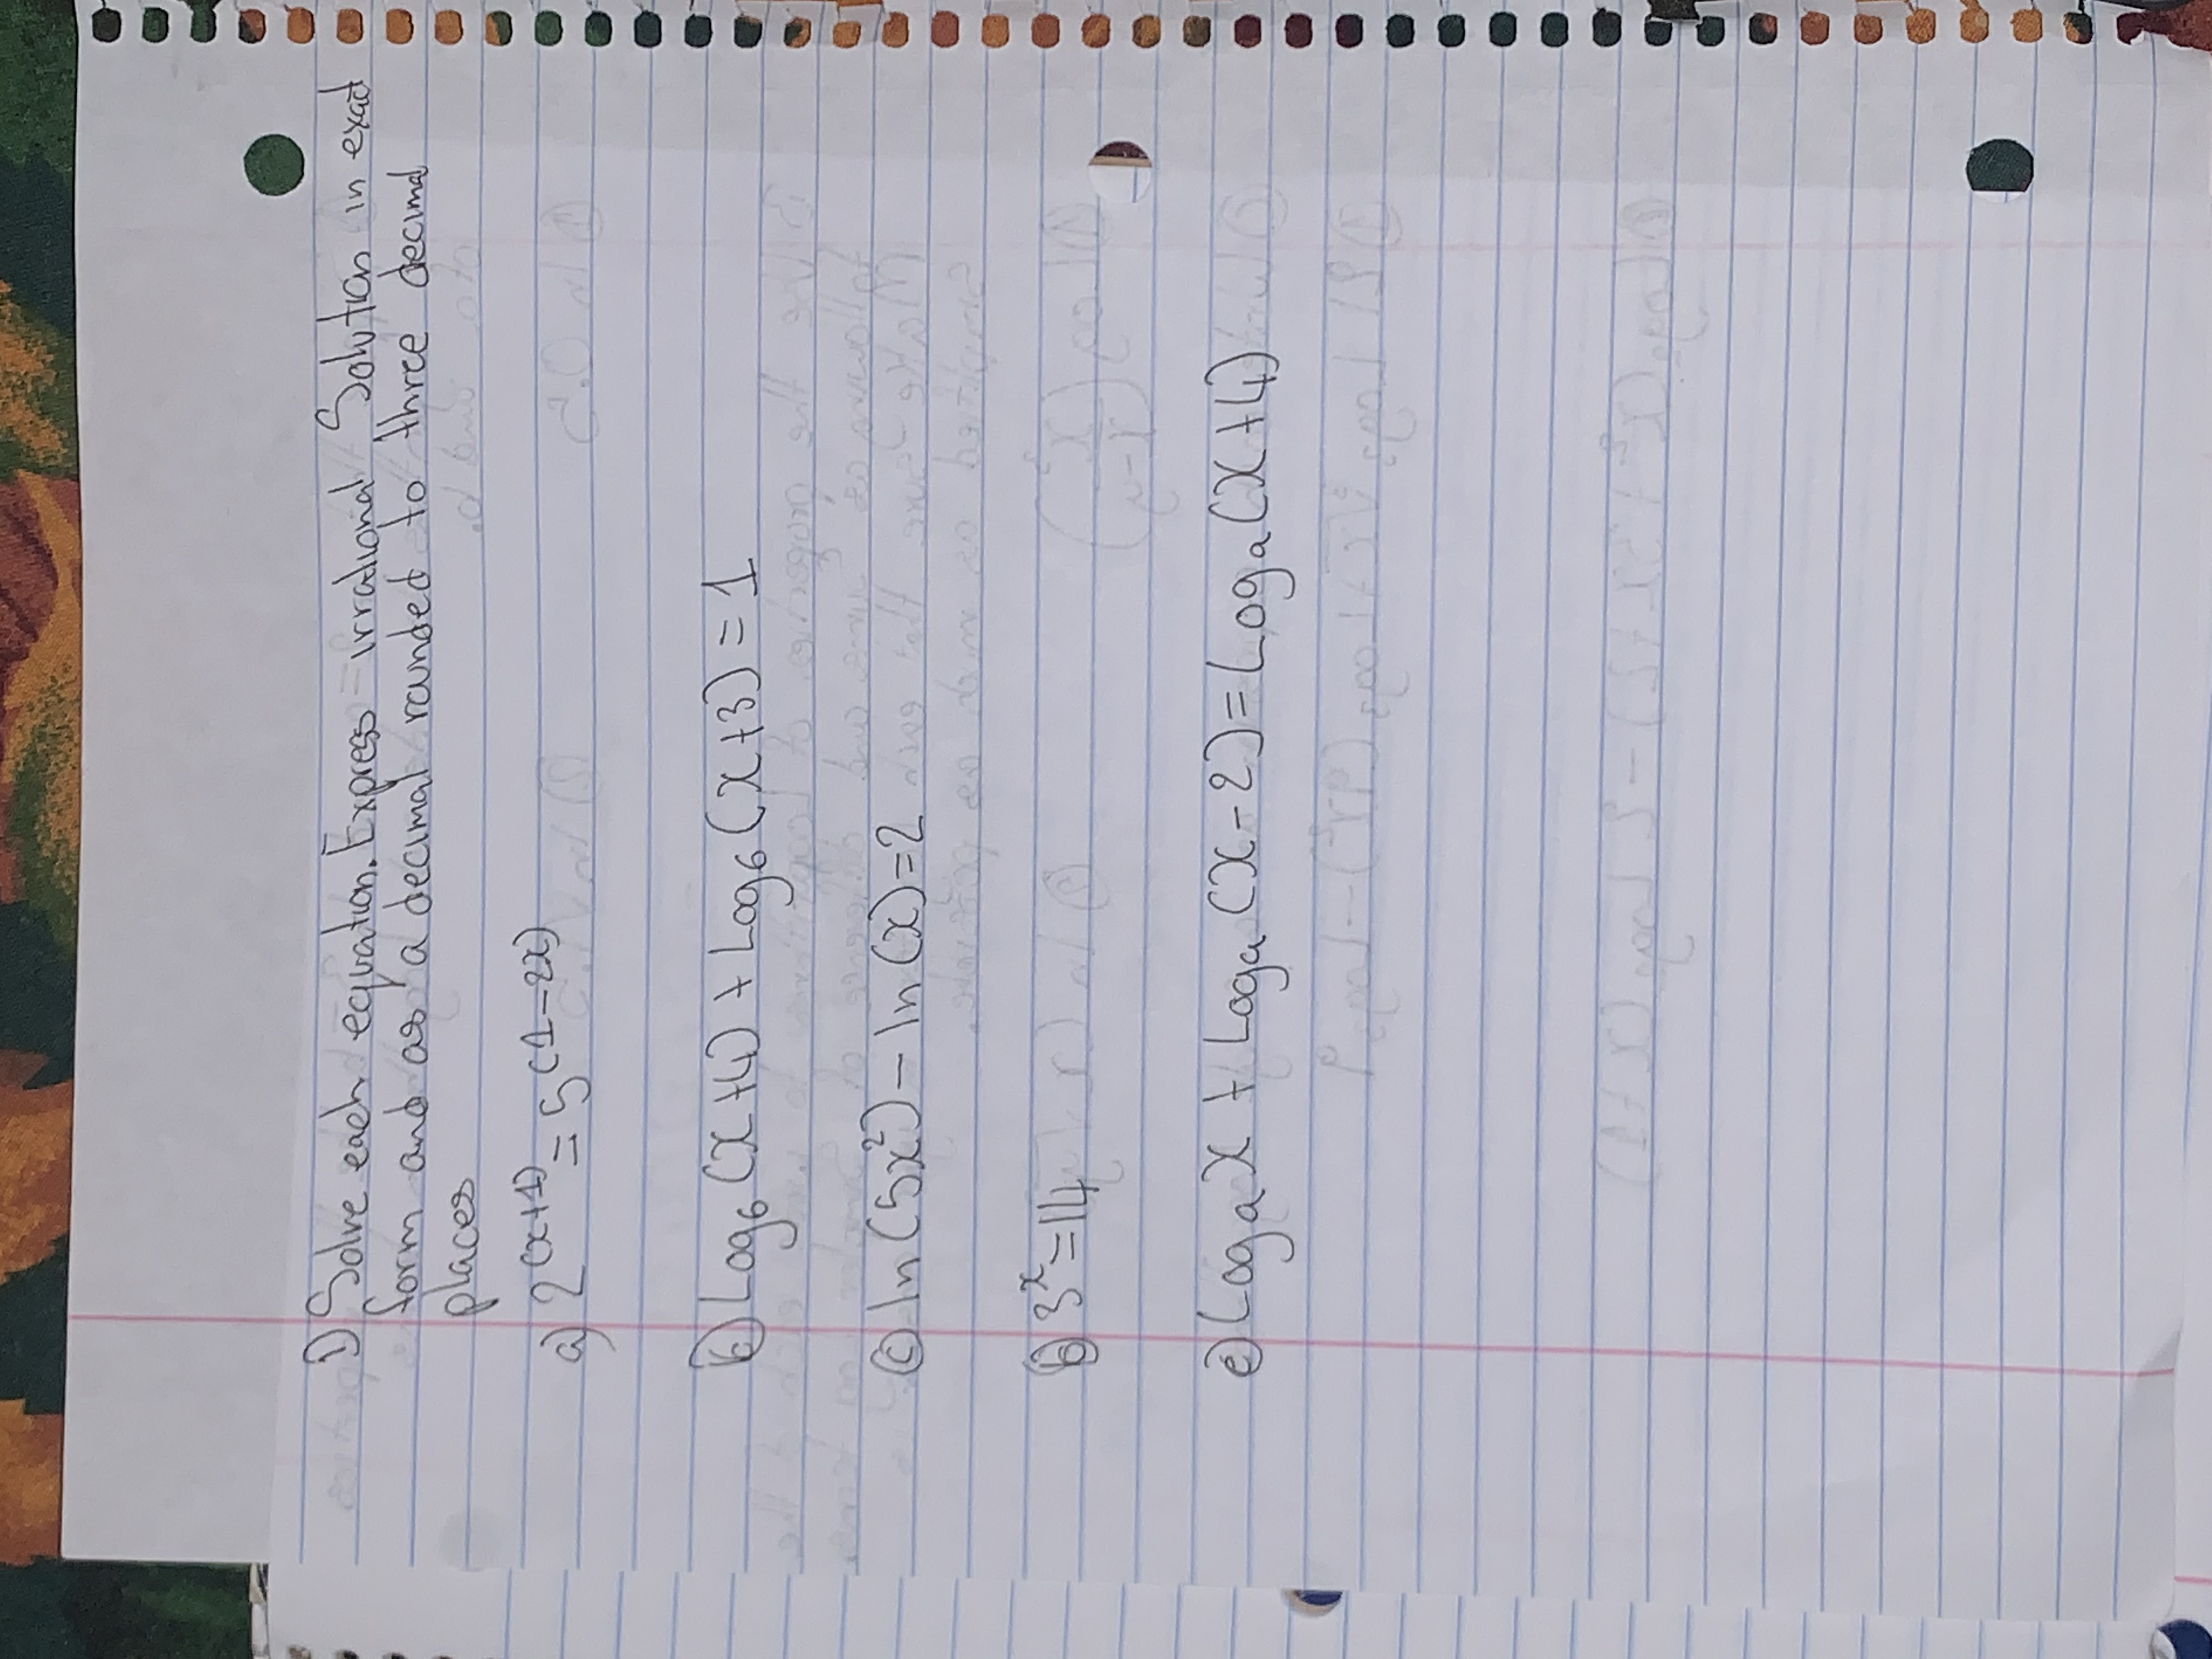 1) Solve each equation. Express irrational Solution in exact
form and as a decimal rounded to three decimal
places
a) 2^(x+1) = 5^(1-2x)
b) Log₆(x+4) + Log₆(x+3) = 1
c) ln(5x²) - ln(x) = 2
b) 3^x = 14
e) Logₐx + Logₐ(x-2) = Logₐ(x+4)